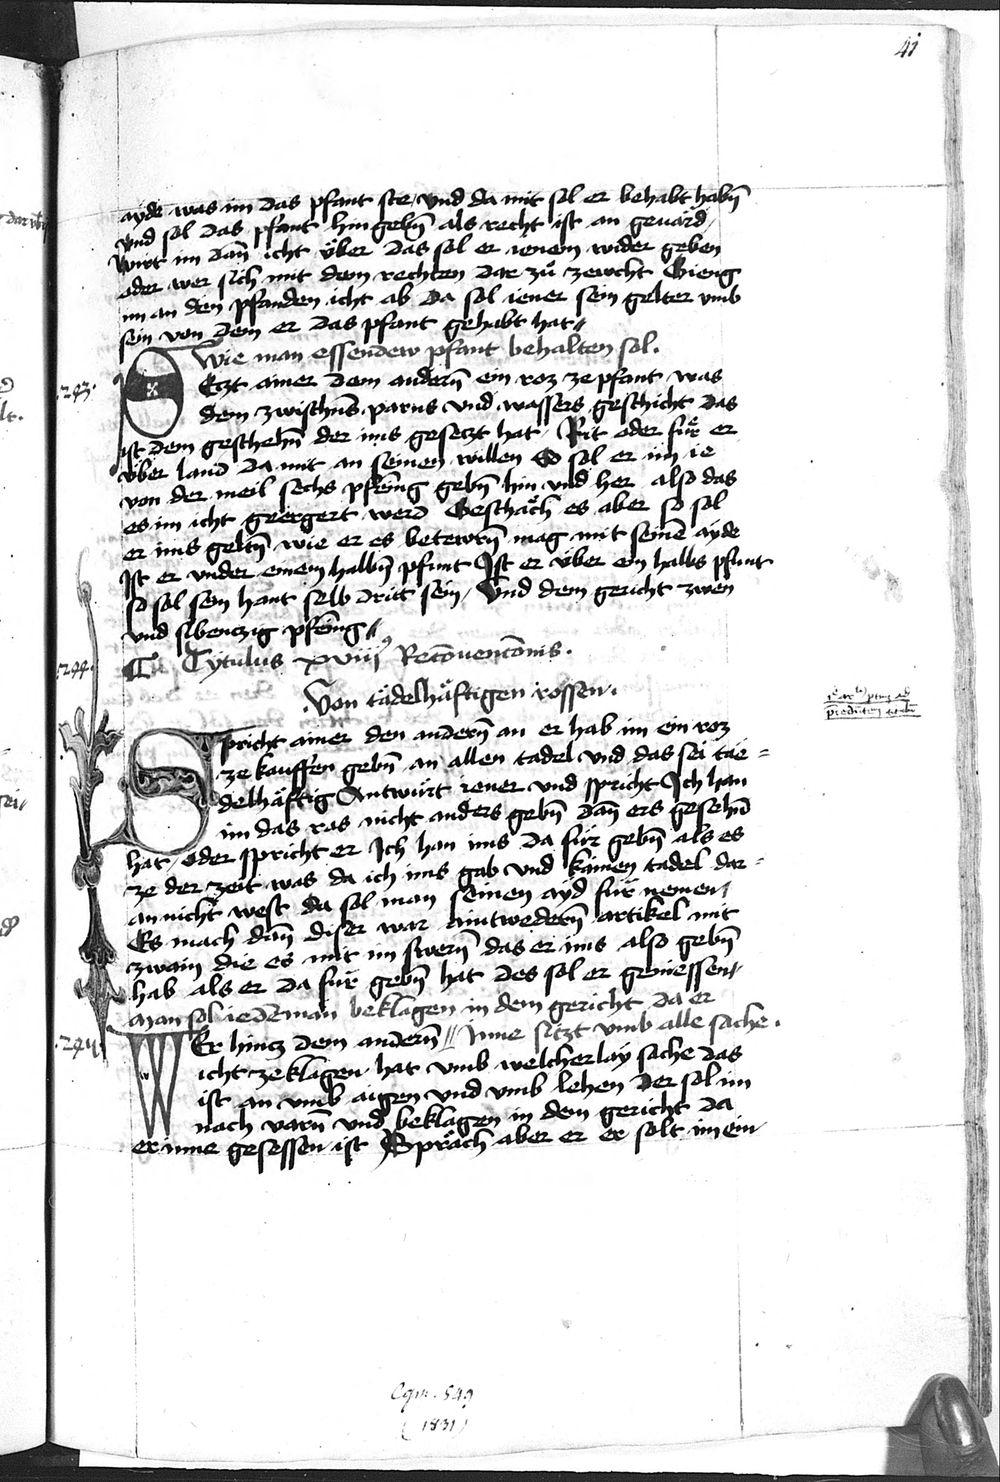 41
ayde was im das pfant ste / und da mit sol er behabt habn̄
vnd sol das pfant hin gebn̄ als recht ist an geuärd /
wirt im dan̄ icht v̈ber das sol er ienem wider geben
oder wer sich mit dem rechten dar zů zeucht Gieng
im an den pfanden icht ab da sol iener sein gelter vmb
sein von dem er das pfant gehabt hat //
Wie man essendew pfant behalten sol .
243.
SEtzt ainer dem andern̄ ein roz ze pfant was
dem zwischn̄s parns vnd wassers geschicht das
ist dem geschehn̄ der ims gesetzt hat / Rit oder fůr er
v̈ber land da mit an seinen willen So sol er im ie
von der meil sechs pfen̄ing gebn̄ hin vnd her also das
es im icht geergert werd Geschäch es aber so sol
er ims geltn̄ wie er es betewrn̄ mag mit seinē ayde
Ist er vnder einem halbn̄ pfunt Ist er v̈ber ein halbs pfunt
so sol sein hant selb dritt sein / Vnd dem gericht zwen
vnd sibenczig pfen̄ing //
244.
Tytulus xviij9 Recōuencōnis .
Von tädelhäftigen rossen .
Spricht ainer den andern̄ an er hab im ein roz
ze kauffen gebn̄ an allen tadel vnd das sei tae =
delhäftig Antwürt iener vnd spricht Ich han
im das ros nicht anders gebn̄ dan̄ ers gesehn̄
hat / oder spricht er Ich han ims da für gebn̄ als es
ze der zeit was da ich ims gab vnd kainen tadel dar =
an nicht west da sol man seinen ayd für nemen /
Es mach dan̄ diser war aintwedern̄ artikel mit
zwain die es mit im swern̄ das er ims also gebn̄
hab als er da für gebn̄ hat des sol er geniessen //
Man sol iedēman beklagen in dem gericht da er
245.
WEr hincz dem andern̄ // Inne sitzt vmb alle sache .
icht ze klagen hat vmb welcherlay sache das
ist an vmb aigen vnd vmb lehen der sol im
nach varn̄ vnd beklagen in dem gericht da
er inne gesessen ist Spräch aber er er solt im ein
Cgm. 549
(1831)